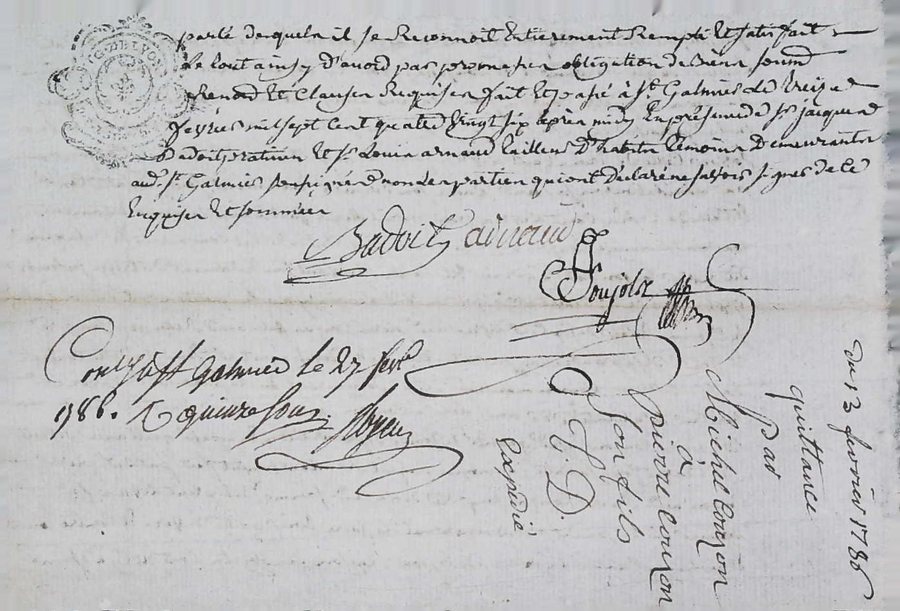 parlé desquels il se Reconnoit Entierement Rempli Et satisfait
Le tout ainsy d'acord par promesses obligation de biens soumd
Renond Et Clauses Requises fait Et passé à St Galmier Le treize
fevrier mil sept Cent quatre vingt six après midy En presence de sr jacques
Badoit praticien Et sr Louis arnaud tailleur D'habits temoins Demeurants
aud. St Galmier soussignés non les parties qui ont declaré ne sçavoir signer de ce
Enquises Et sommées
Badoit arnaud
Poujols
Conlé à St Galmier le 27 fevr
1786. R quinze sous
du 13 fevrier 1786
quittance
par
Michel Conzon
a
pierre Conzon
son fils
T. D.
Expédié